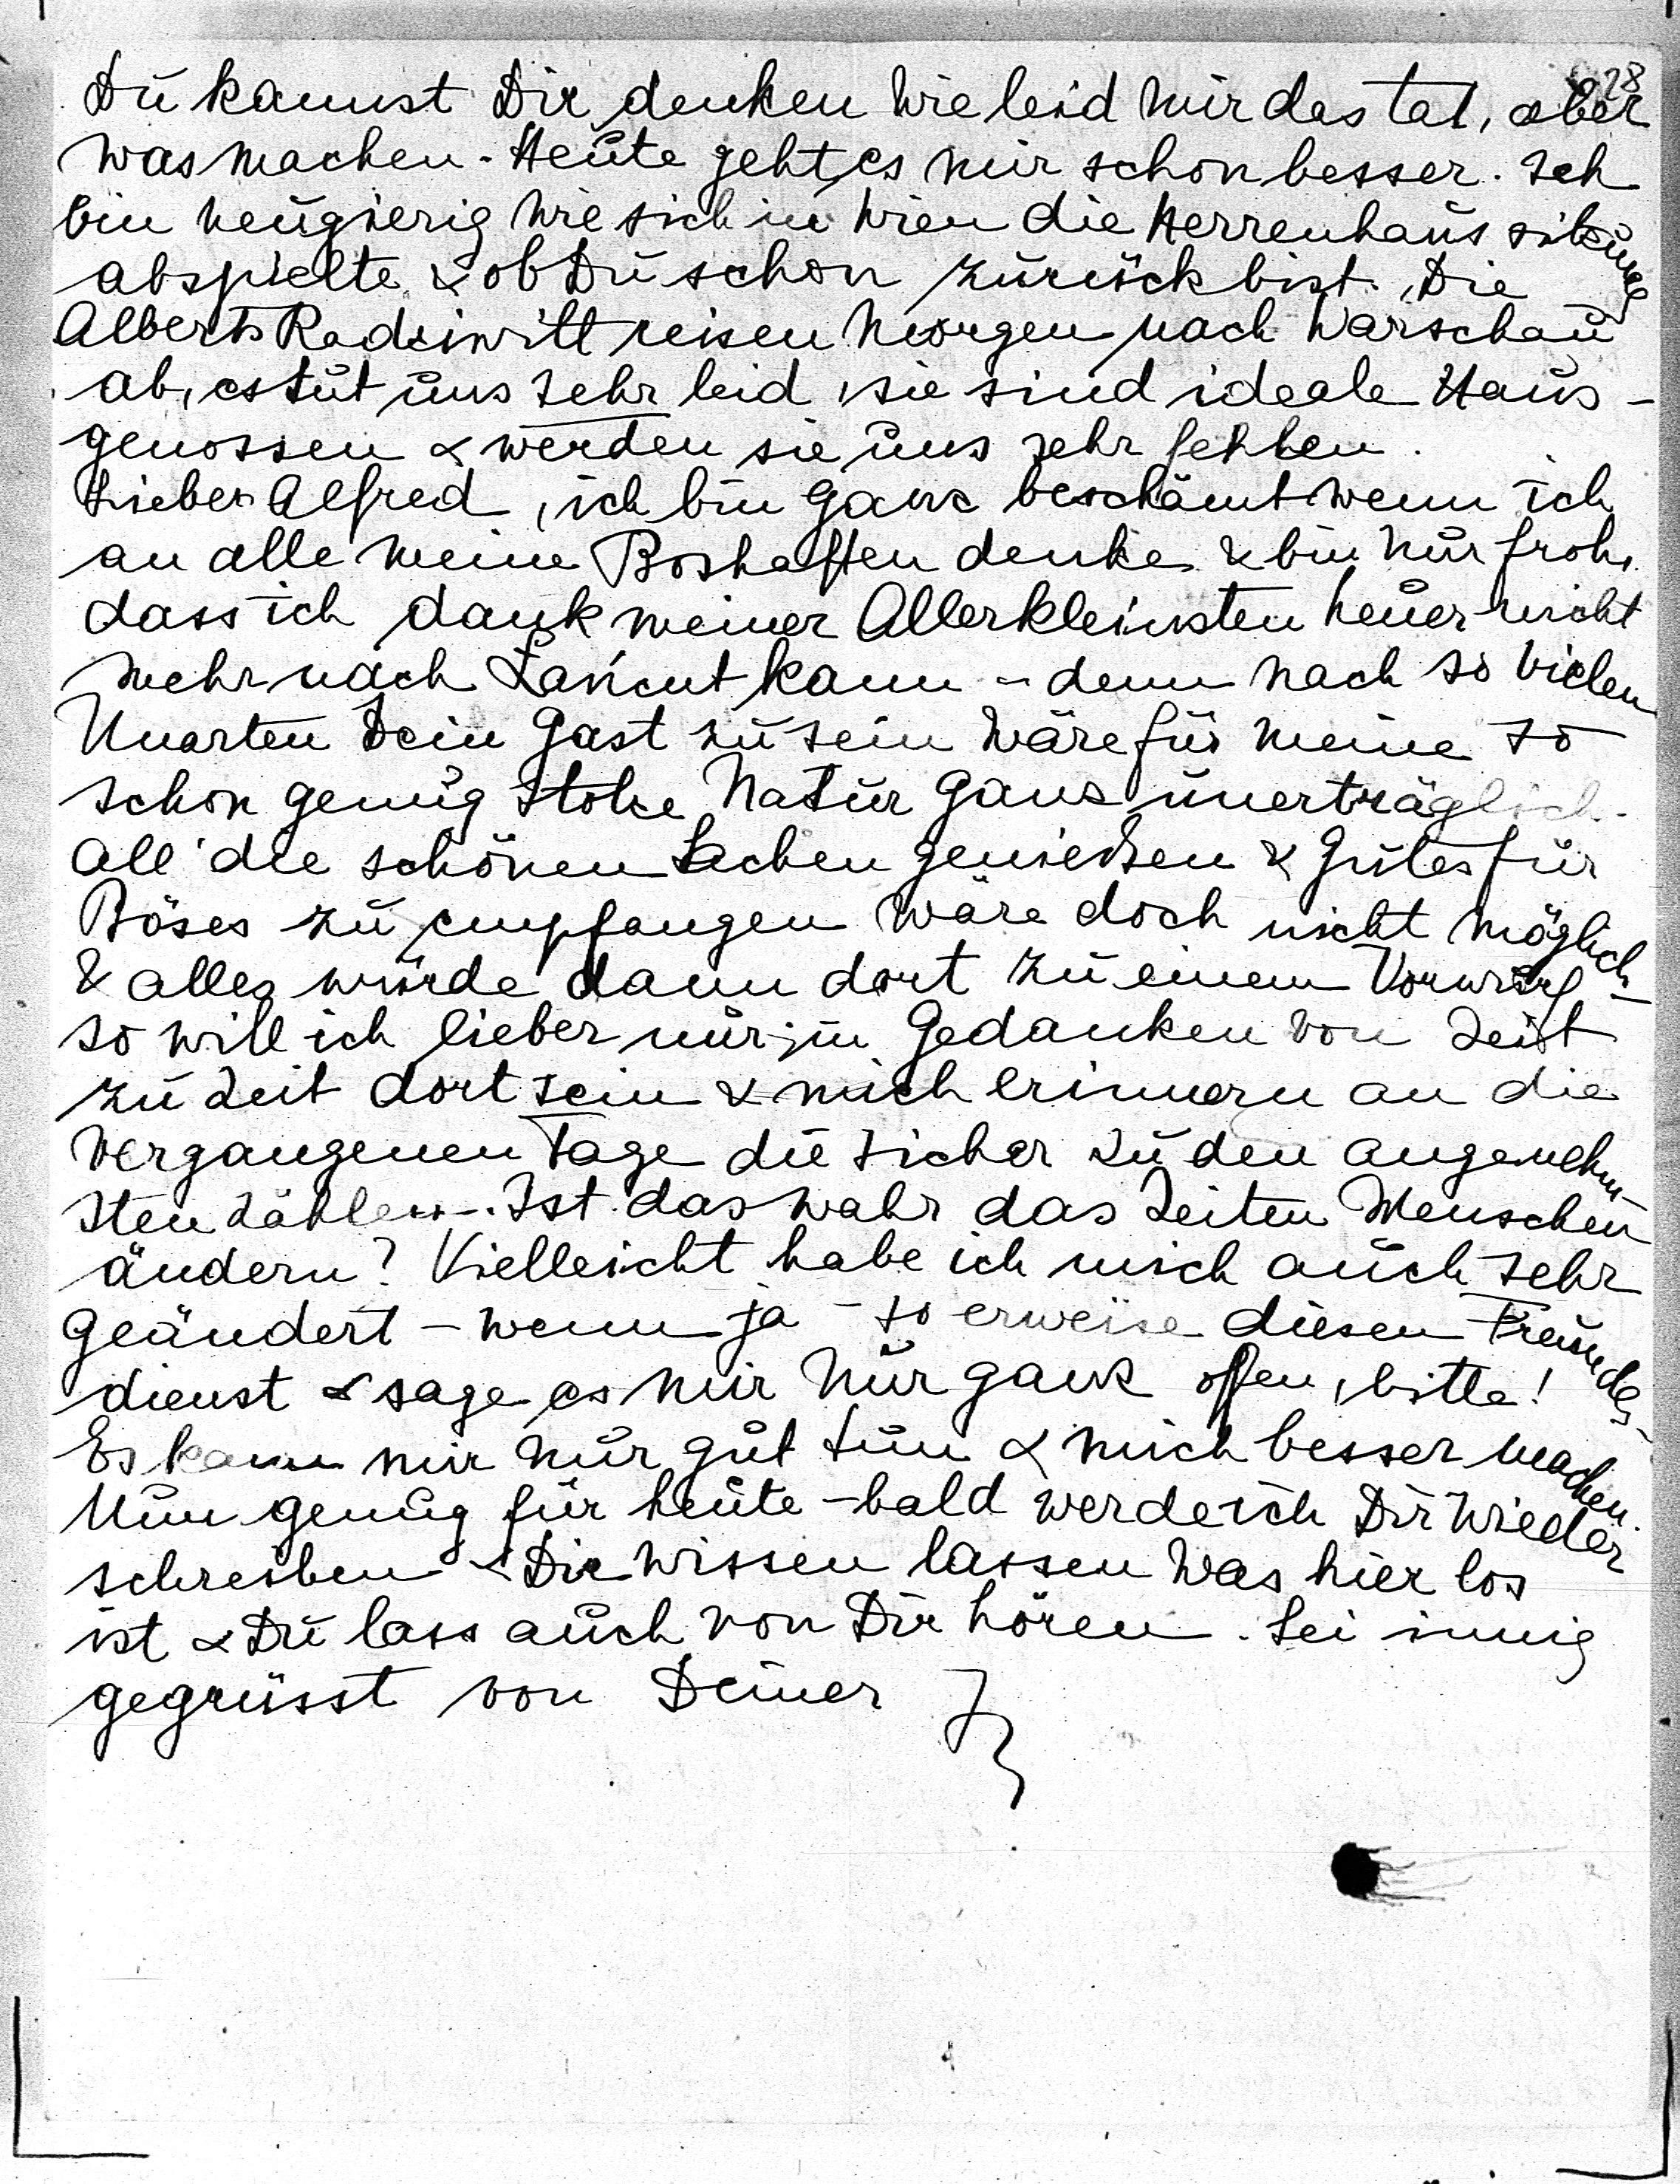 28
Du kannst Dir denken wie leid mir das tat, aber
was machen. Heute geht es mir schon besser. Ich
bin neugierig wie sich in Wien die Herrenhaus sitzung
abspielte & ob Du schon zurück bist. Die
Alberts Radziwill reisen morgen nach Warschau
ab, es tut uns sehr leid, sie sind ideale Haus-
genossen & werden sie uns sehr fehlen.
Lieber Alfred, ich bin ganz beschämt wenn ich
an alle meine Boshaften denke & bin nur froh,
dass ich dank meiner Allerkleinsten heuer nicht
mehr nach Łańcut kann - denn nach so vielen
Unarten Dein Gast zu sein wäre für meine so
schon genug stolze Natur ganz unerträglich.
All' die schönen Sachen genießen & Gutes für
Böses zu empfangen wäre doch nicht möglich
& alles würde dann dort zu einem Vorwurf -
so will ich lieber nur in Gedanken von Zeit
zu Zeit dort sein & mich erinnern an die
vergangenen Tage die sicher zu den angenehm-
sten zählen. Ist das wahr das Zeiten Menschen
ändern? Vielleicht habe ich mich auch sehr
geändert - wenn ja - so erweise diesen Freundes-
dienst & sage es mir nur ganz offen, bitte!
Es kann mir nur gut tun & mich besser machen.
Nun genug für heute - bald werde ich Dir wieder
schreiben & Dir wissen lassen was hier los
ist & Du lass auch von Dir hören. Sei innig
gegrüsst von Deiner